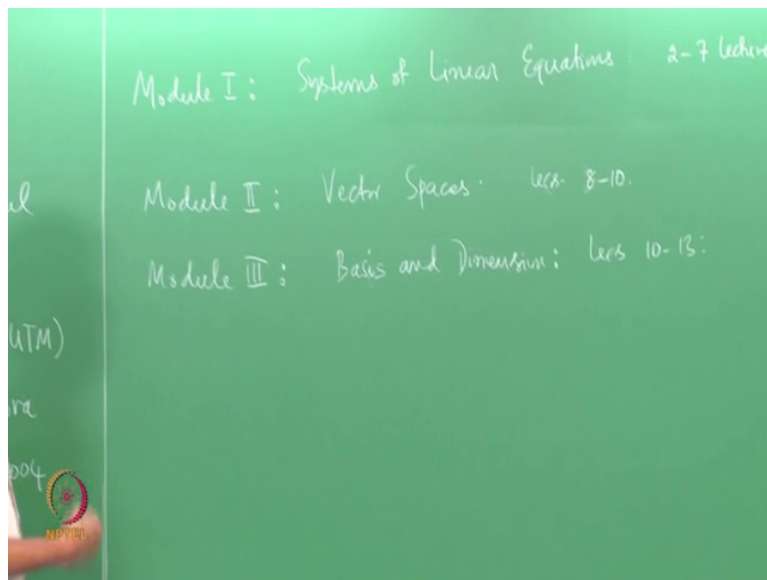 Module I : Systems of Linear Equations : 2-7 lecture
Module II : Vector Spaces : lecs. 8-10.
Module III : Basis and Dimension : lecs 10-13 :
al
UTM)
ra
004
NPTEL